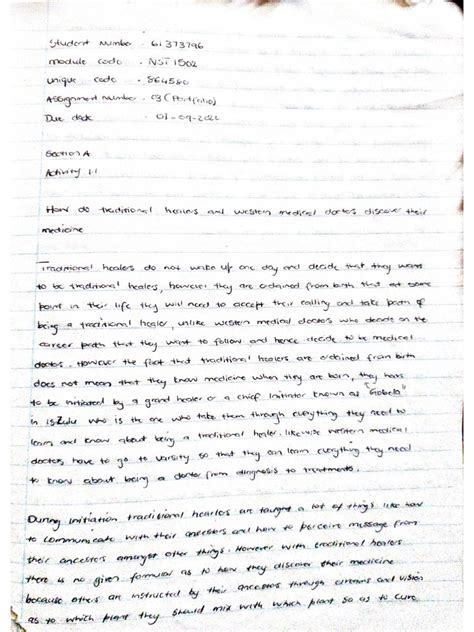 Student Number - 61373796
module code - NSI 1502
unique code - 864580
Assignment number - 03 (Portfolio)
Due date 01-09-2022
Section A
Activity 1.1
How do traditional healers and western medical doctors discover their
medicine
Traditional healers do not wake up one day and decide that they want
to be traditional healers, however they are ordained from birth that at some
point in their life they will need to accept their calling and take path of
being a traditional healer, unlike western medical doctors who decide on the
career path that they want to follow and hence decide to be medical
doctors. However the fact that traditional healers are ordained from birth
does not mean that they know medicine when they are born, they have
to be initiated by a grand healer or a chief initiator known as "Gobela"
in isZulu who is the one who take them through everything they need to
learn and know about being a traditional healer, likewise western medical
doctors have to go to varsity so that they can learn everything they need
to know about being a doctor from diagnosis to treatments.
During initiation traditional healers are taught a lot of things like how
to communicate with their ancestors and how to perceive message from
their ancestors amongst other things. However with traditional healers
there is no given formular as to how they discover their medicine
because others are instructed by their ancestors through and vision
as to which plant they should mix with which plant so as to cure